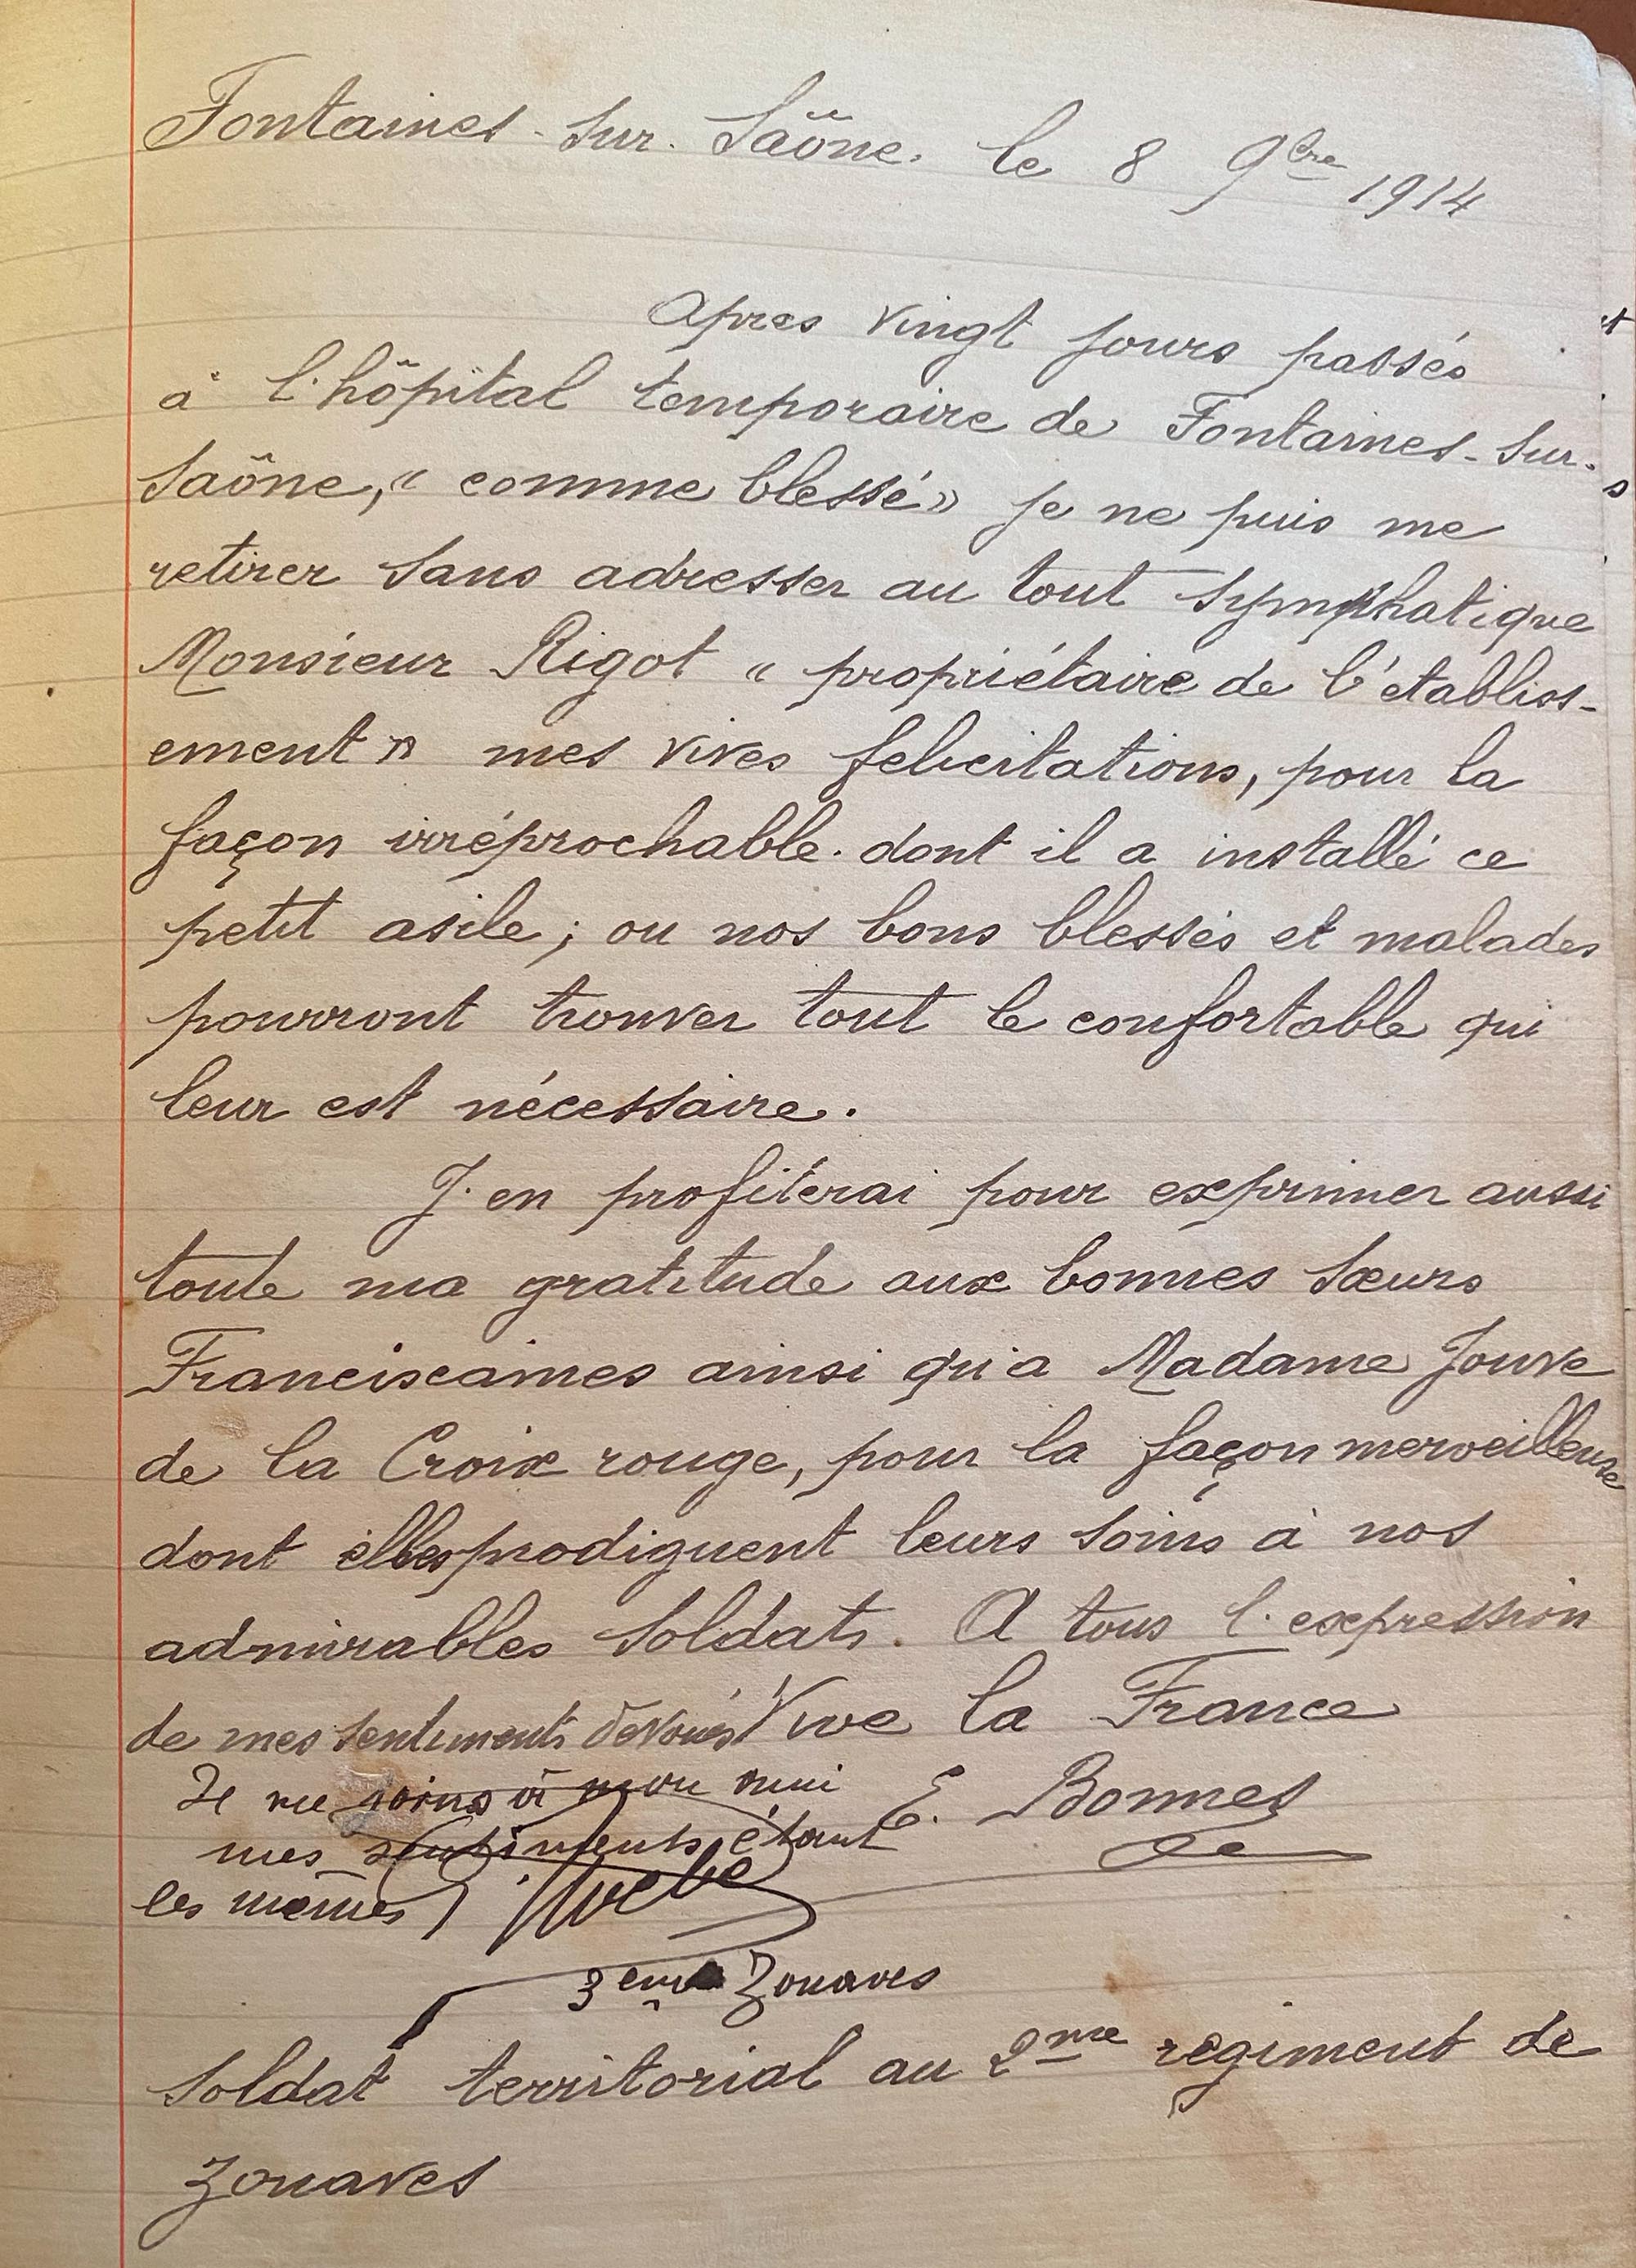 Fontaines-sur-Saône le 8 9bre 1914
Apres vingt jours passés
à l'hôpital temporaire de Fontaines-sur-
Saône, " comme blessé" je ne puis me
retirer sans adresser au tout symphatique
Monsieur Rigot " propriétaire de l'établiss-
ement " mes vives felicitations, pour la
façon irréprochable. dont il a installé ce
petit asile; ou nos bons blessés et malades
pourront trouver tout le confortable qui
leur est nécessaire.
J'en profiterai pour exprimer aussi
toute ma gratitude aux bonnes sœurs
Franciscaines ainsi qu'a Madame Jouve
de la Croix rouge, pour la façon merveilleuse
dont elles prodiguent leurs soins à nos
admirables soldats. A tous l'expression
de mes sentiments dévoués Vive la France
Je me joins à mon ami
E. Bonnes
mes sentiments étant
les mêmes
3eme Zouaves
soldat territorial au 2me regiment de
Zouaves